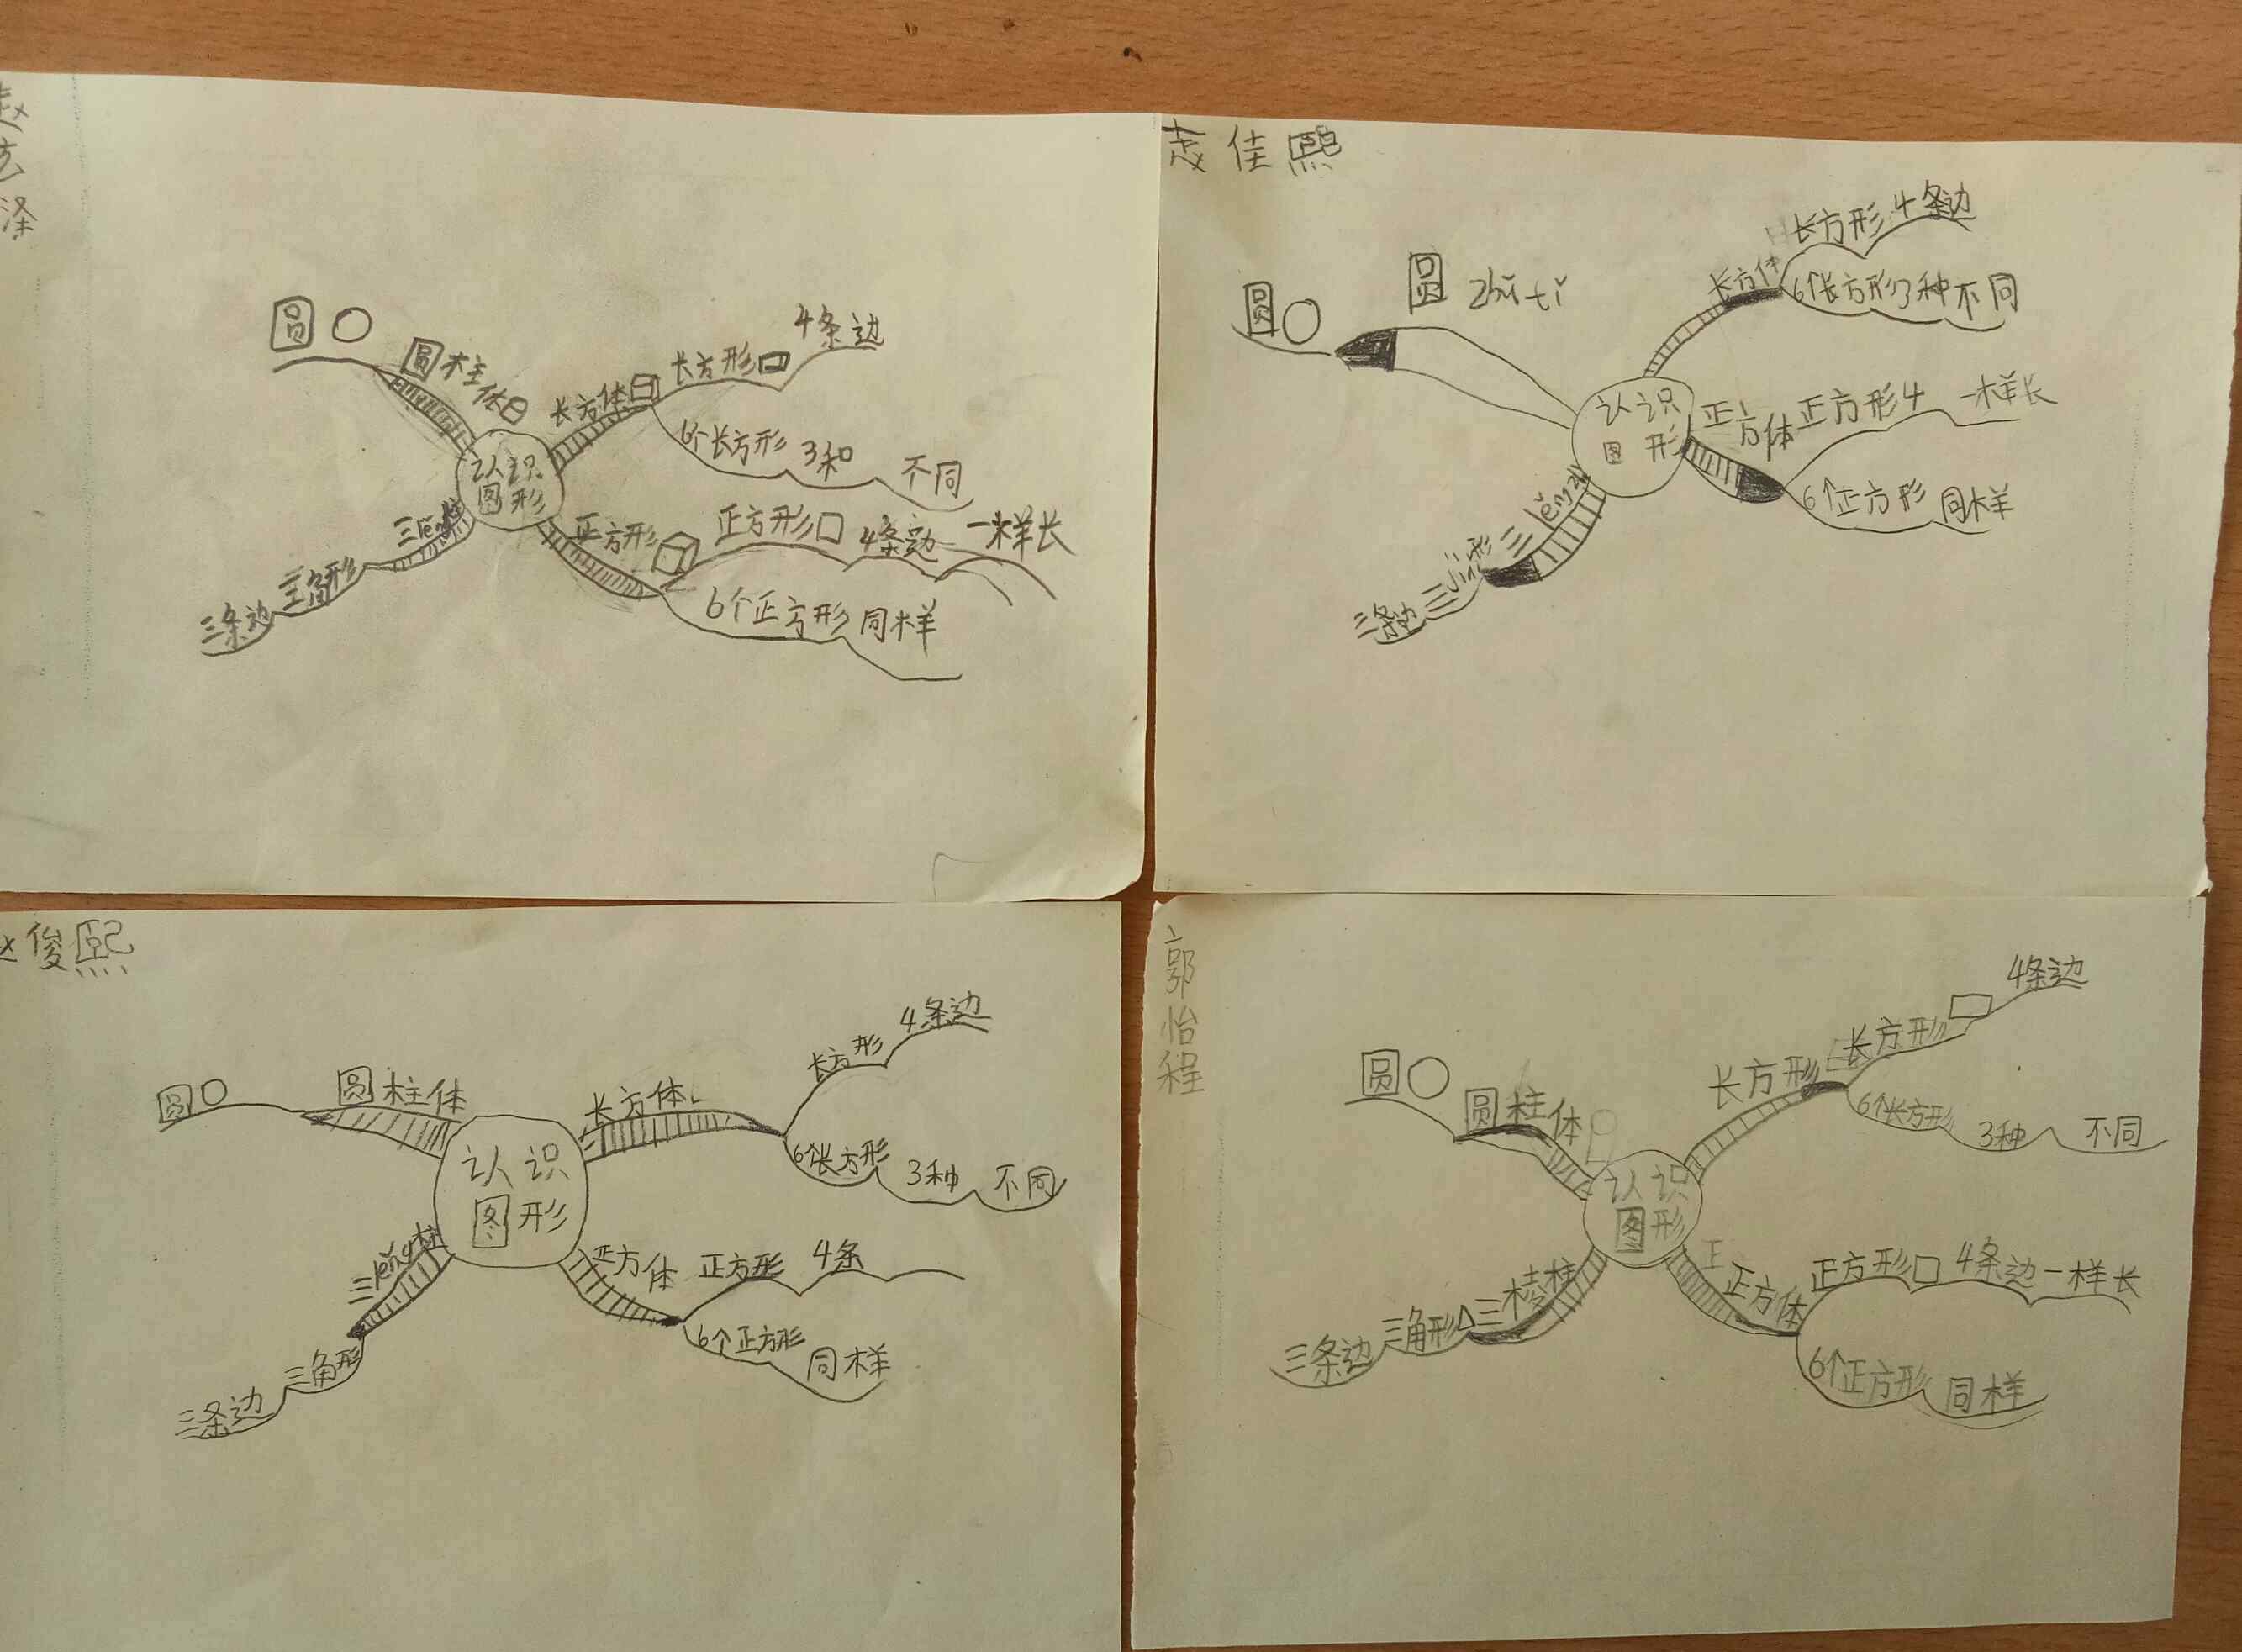 赵
泽
圆
圆柱体
长方体
长方形
4条边
6个长方形 3和 不同
认识
图形
三lěng柱
三角形
三条边
正方形
正方形 4条边 一样长
6个正方形 同样
佳熙
圆
圆 zhù tǐ
长方体
长方形 4条边
6个长方形3种不同
认识
图形
正方体
正方形4 一样长
6个正方形 同样
三lěng
三jiǎo形
三条边
俊熙
圆
圆柱体
长方体
长方形
4条边
6个长方形 3种 不同
认识
图形
三lěng柱
三角形
三条边
正方体
正方形 4条
6个正方形 同样
郭怡程
圆
圆柱体
长方形
长方形
4条边
6个长方形 3种 不同
认识
图形
三棱柱
三角形
三条边
正
正方体
正方形 4条边一样长
6个正方形 同样